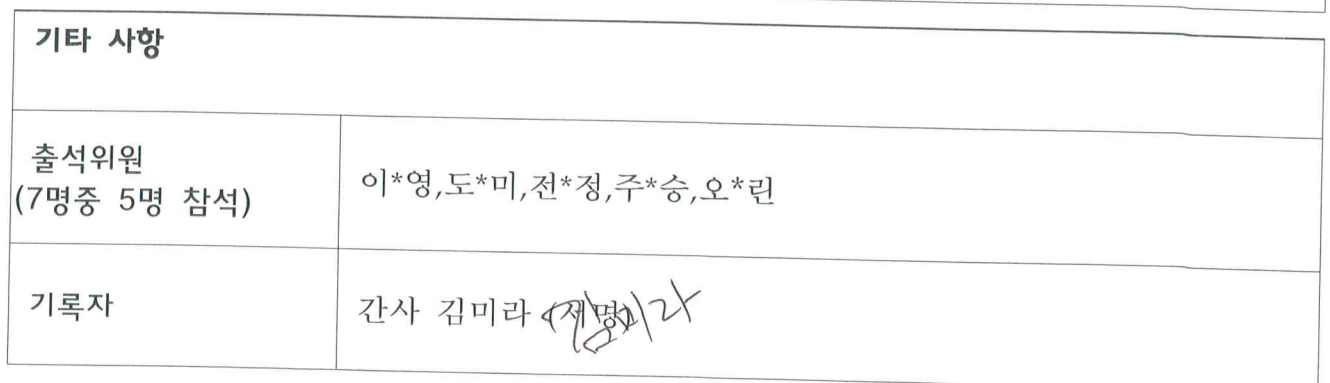 기타 사항
출석위원
(7명중 5명 참석)
이*영,도*미,전*정,주*승,오*린
기록자
간사 김미라 (서명) 김미라